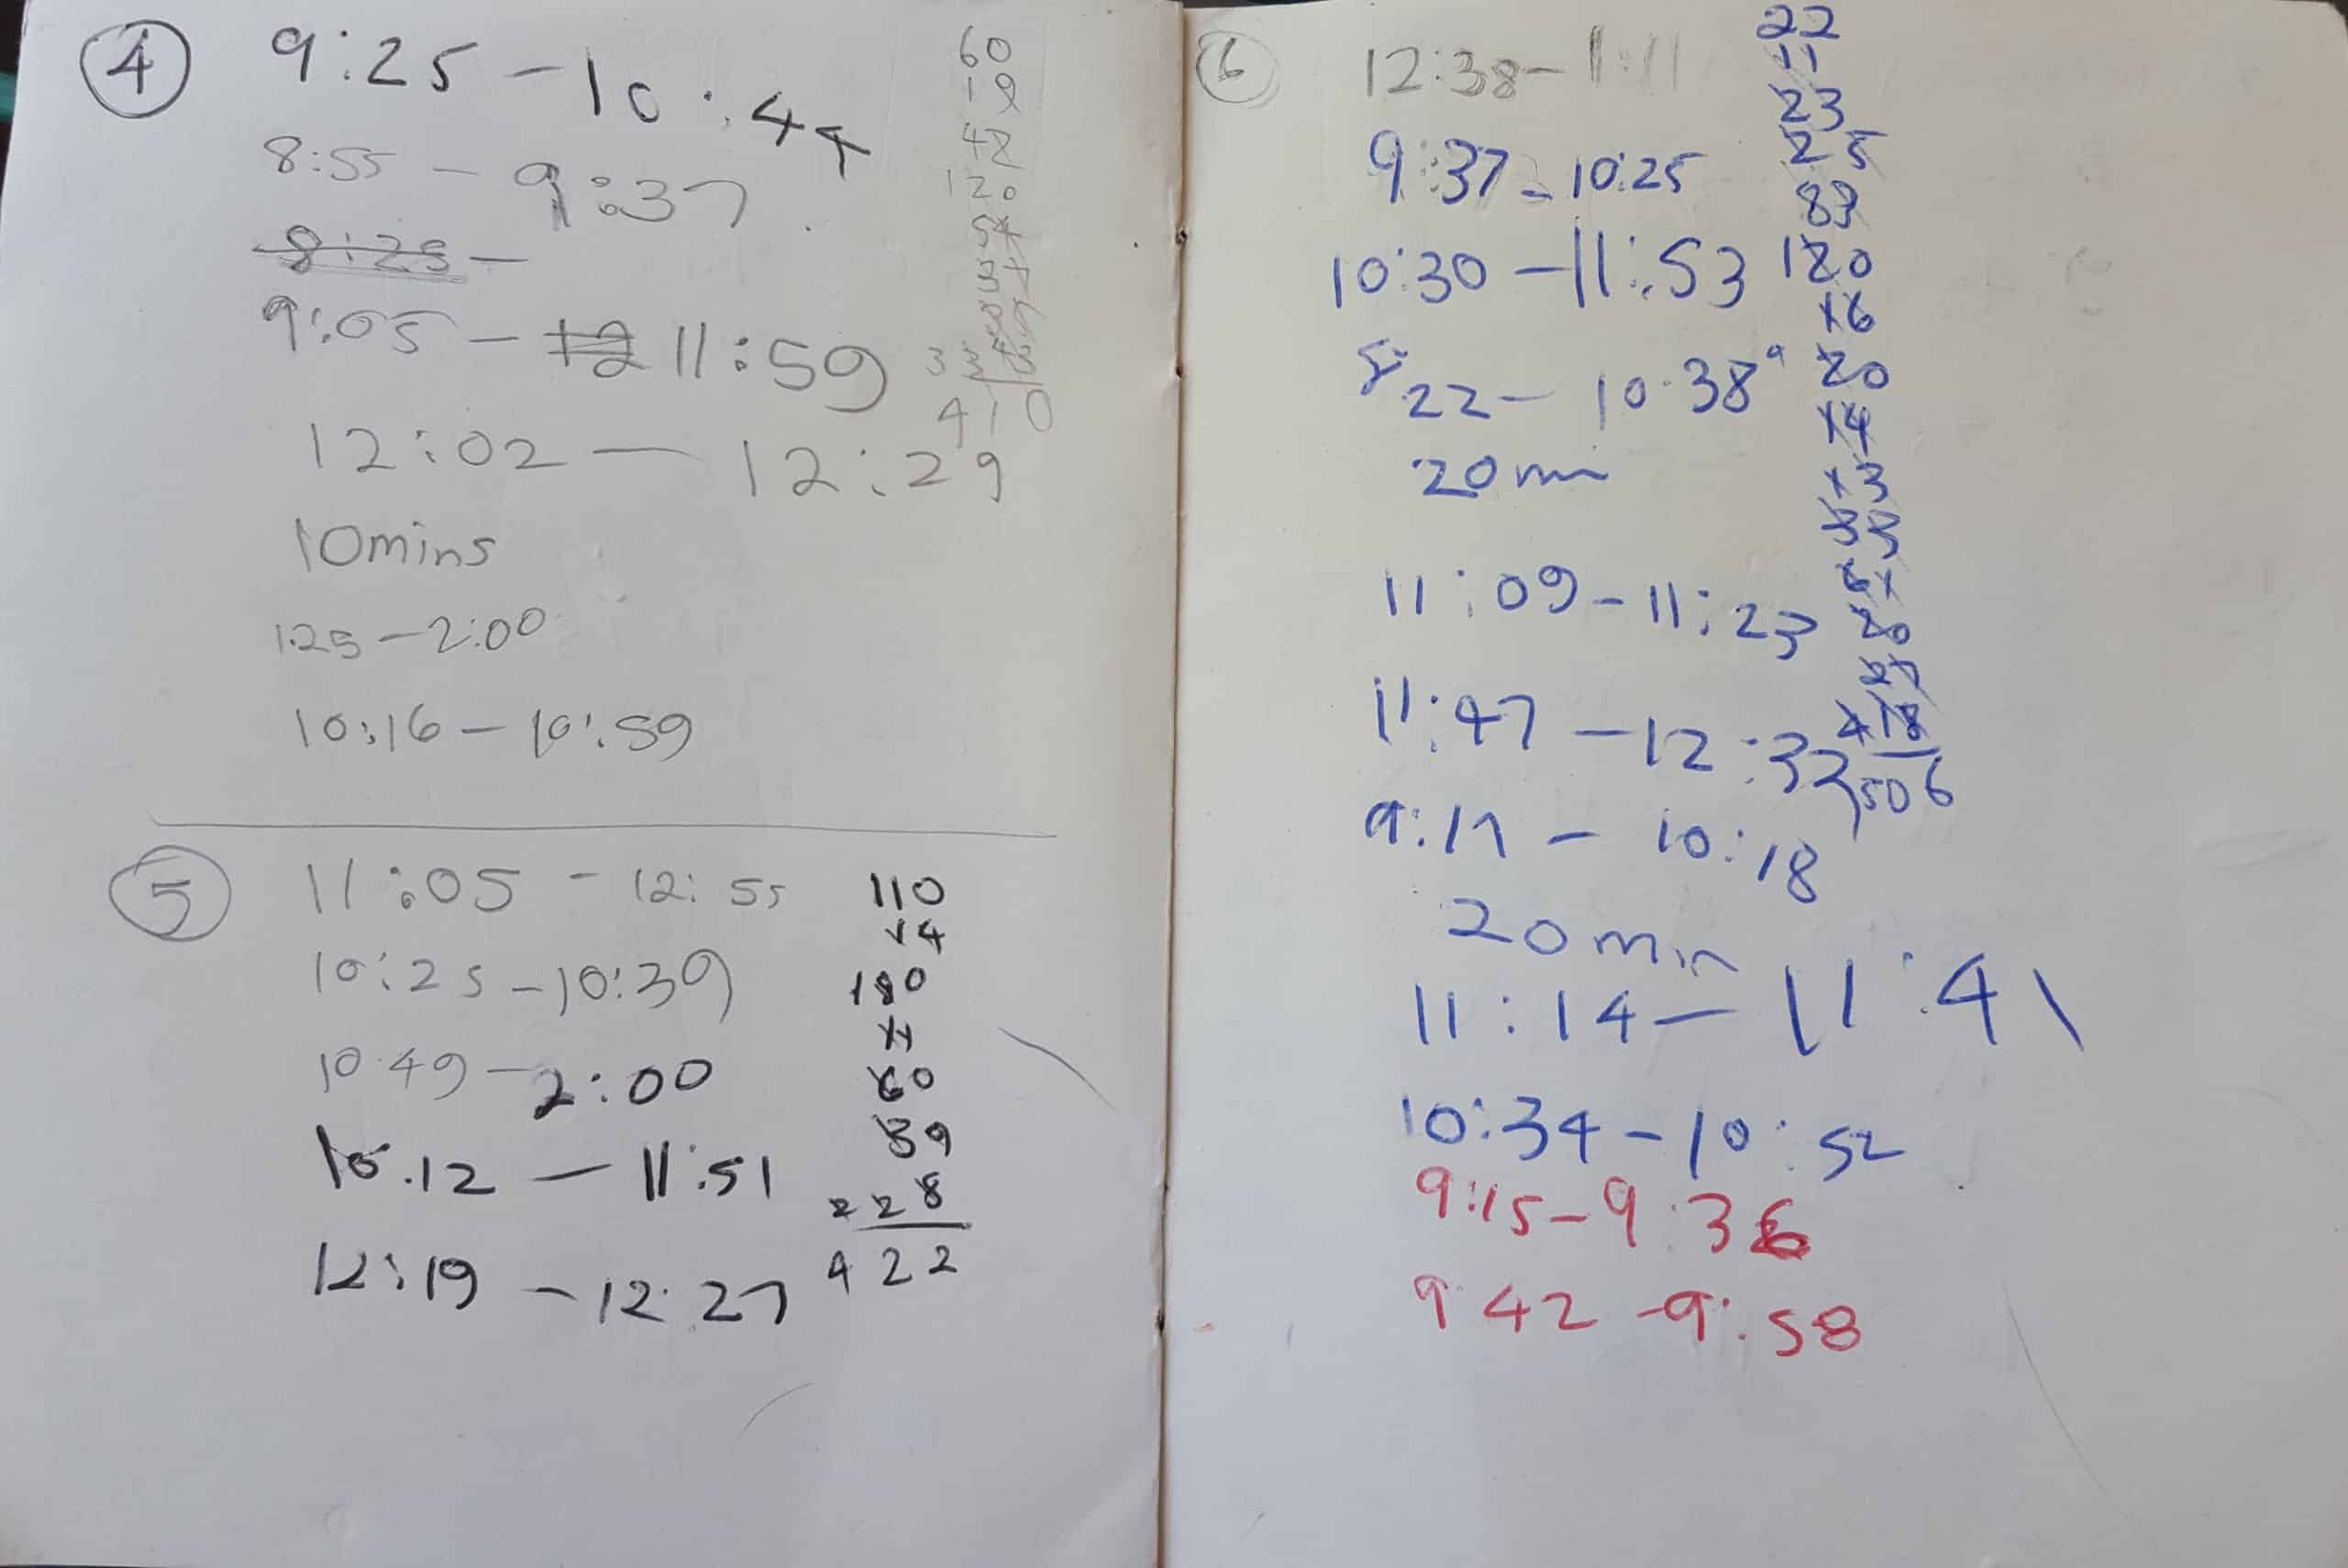 4
9:25 - 10:44
8:55 - 9:37
8:25 -
9:05 - 12 11:59
12:02 - 12:29
10mins
1:25 - 2:00
10:16 - 10:59
60
19
42
120
54
410
5
11:05 - 12:55
10:25 - 10:39
10:49 - 2:00
10.12 - 11:51
12:19 - 12:27
110
14
180
11
60
39
228
422
6
12:38 - 1:11
9:37 - 10:25
10:30 - 11:53
8:22 - 10:38
20 min
11:09 - 11:23
11:47 - 12:32
9:17 - 10:18
20 min
11:14 - 11:41
10:34 - 10:52
9:15 - 9:36
9:42 - 9:58
22
11
23
25
83
120
16
20
14
13
33
20
27
18
506